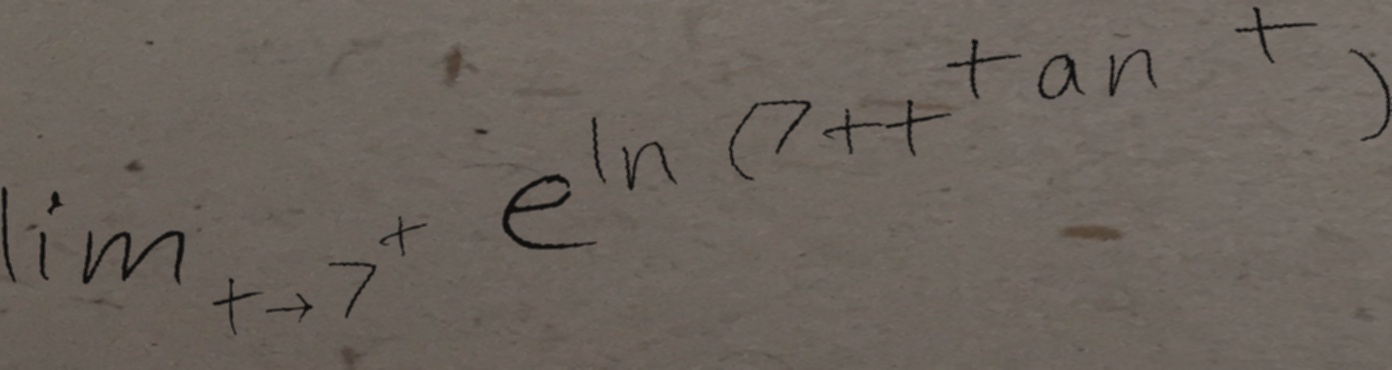 lim_{t→7^+} e^{ln(7+t^{tan t})}